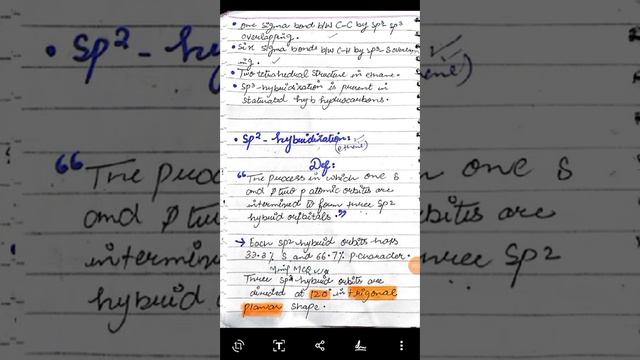 • one sigma bond b/w C-C by sp³ sp³
overlapping.
• Six sigma bonds b/w C-H by sp³-S
• Two tetrahedral structure in ethane.
• sp³-hybridization is present in
staturated hyb hydrocarbons.
• sp²-hybridization:
(ethene)
Def:
"The process in which one s
and p two p atomic orbitals are
intermined to form three sp2
hybrid orbitals."
→ Each sp2 hybrid orbits has
33.3% S and 66.7% p-character.
Three sp² hybrid orbits are
directed at 120° in trigonal
planar shape.